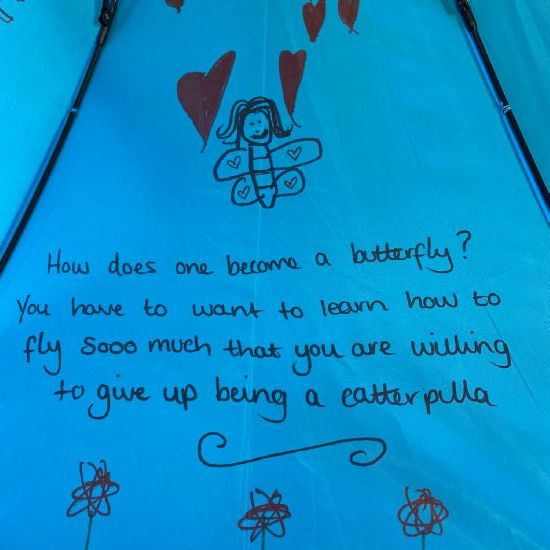 How does one become a butterfly?
You have to want to learn how to
fly sooo much that you are willing
to give up being a catterpilla